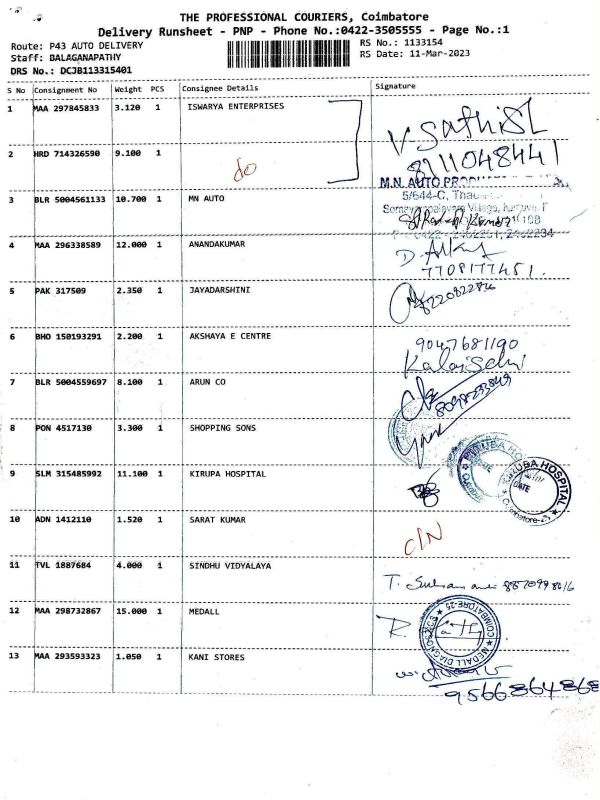 THE PROFESSIONAL COURIERS, Coimbatore
Delivery Runsheet - PNP - Phone No.:0422-3505555 - Page No.:1
Route: P43 AUTO DELIVERY
RS No.: 1133154
Staff: BALAGANAPATHY
RS Date: 11-Mar-2023
DRS No.: DCJB113315401
S No Consignment No Weight PCS Consignee Details Signature
1 MAA 297845833 3.120 1 ISWARYA ENTERPRISES
V. Sathish
2 HRD 714326590 9.100 1 do
8111048441
M.N. AUTO
5/644-C,
3 BLR 5004561133 10.700 1 MN AUTO
4 MAA 296338589 12.000 1 ANANDAKUMAR
7708177451.
5 PAK 317509 2.350 1 JAYADARSHINI
8220822846
6 BHO 150193291 2.200 1 AKSHAYA E CENTRE
9047681190
Kalaiselvi
7 BLR 5004559697 8.100 1 ARUN CO
8 PON 4517130 3.300 1 SHOPPING SONS
9 SLM 315485992 11.100 1 KIRUPA HOSPITAL
HOSPITAL
DATE
Coimbatore-25
10 ADN 1412110 1.520 1 SARAT KUMAR
C/N
11 TVL 1887684 4.000 1 SINDHU VIDYALAYA
T.
12 MAA 298732867 15.000 1 MEDALL
R.
MEDALL DIAGNOSTICS
COIMBATORE-25
13 MAA 293593323 1.050 1 KANI STORES
9566864868